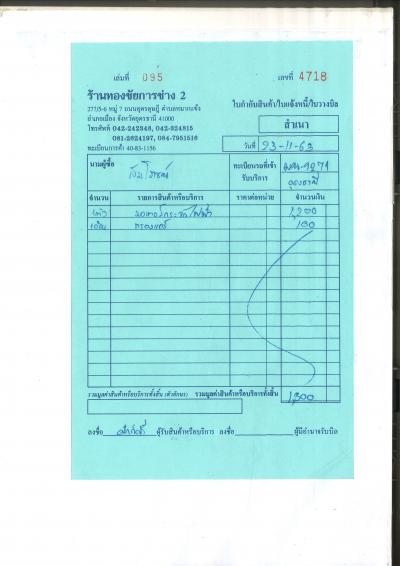 เล่มที่ 095 เลขที่ 4718
ร้านทองชัยการช่าง 2
277/5-6 หมู่ 7 ถนนอุดรดุษฎี ตำบลหมากแข้ง
อำเภอเมือง จังหวัดอุดรธานี 41000
โทรศัพท์ 042-242348, 042-324815
081-2624197, 084-7951516
ทะเบียนการค้า 40-83-1156
ใบกำกับสินค้า/ใบแจ้งหนี้/ใบวางบิล
สำเนา
วันที่ 23-11-63
นามผู้ซื้อ ทะเบียนรถที่เข้ารับบริการ
อุดรธานี
จำนวน รายการสินค้าหรือบริการ ราคาต่อหน่วย จำนวนเงิน
1ตัว มอเตอร์กระจกไฟฟ้า 1,200
100
รวมมูลค่าสินค้าหรือบริการทั้งสิ้น (ตัวอักษร) รวมมูลค่าสินค้าหรือบริการทั้งสิ้น 1,300
ลงชื่อ ผู้รับสินค้าหรือบริการ ลงชื่อ ผู้มีอำนาจรับบิล